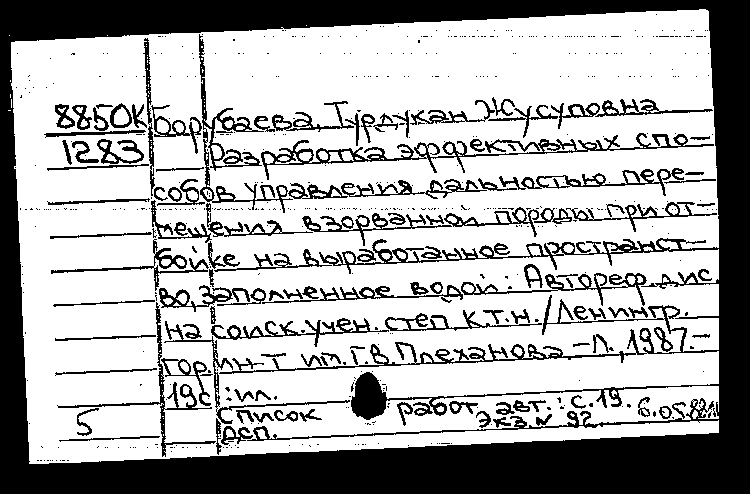 8850К Борубаева, Турдукан Жусуповна
1283 Разработка эффективных спо-
собов управления дальностью пере-
мещения взорванной породы при от-
бойке на выработанное пространст-
во, заполненное водой: Автореф. дис.
на соиск. учен. степ к.т.н./Ленингр.
гор. ин-т им. Г.В. Плеханова. -Л., 1987.-
19с :ил.
5 Список работ. авт.: с.19.
ДСП. Экз. N 92.